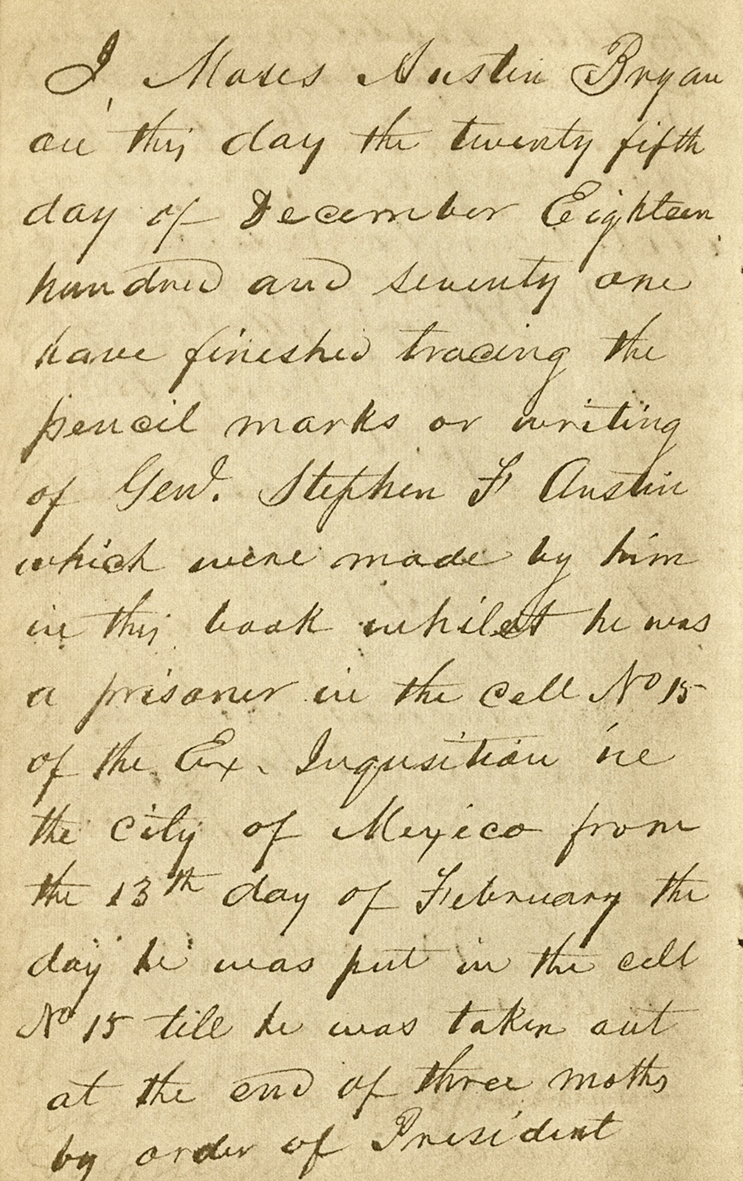 I, Moses Austin Bryan
on this day the twenty fifth
day of December Eighteen
hundred and seventy one
have finished tracing the
pencil marks or writing
of Genl. Stephen F Austin
which were made by him
in this book whilest he was
a prisoner in the cell No 15
of the Ex. Inqusition in
the city of Mexico from
the 13th day of February the
day he was put in the cell
No 15 till he was taken out
at the end of three moths
by order of President